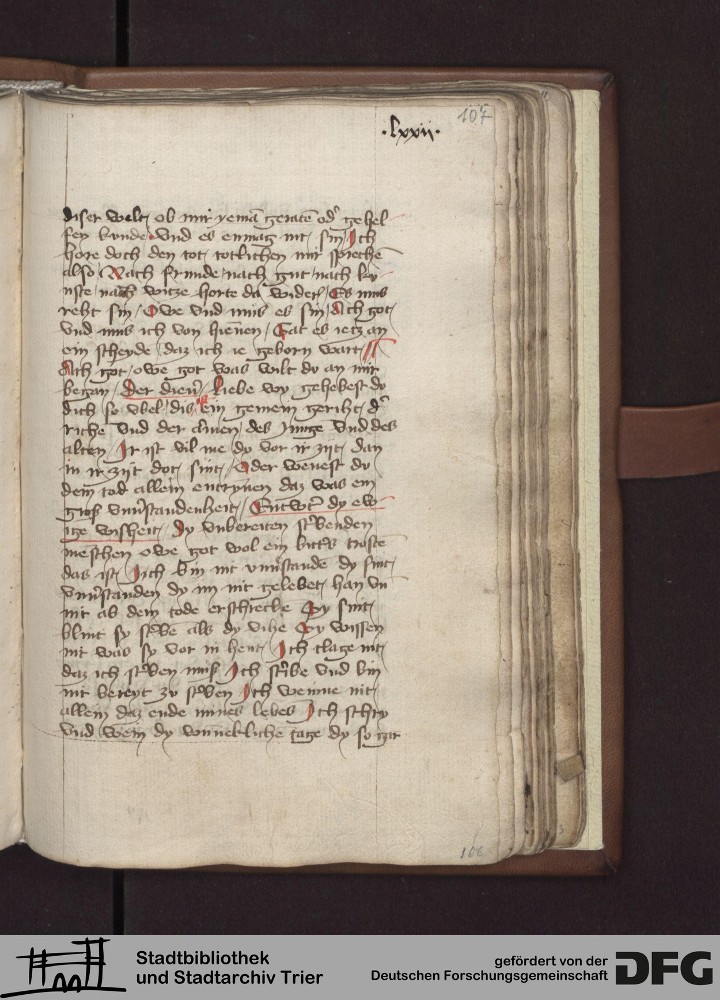 107
·lxxii·
diser welt / ob mir yemā geratē od' gehel
fen kunde / Vnd es enmag nit / sin / Ich
hore doch den tot / totlichen mir sprechē
also / Nach frunde / nach gut / nach ku
nste / nach witze horte da wider / Es mus
reht sin / Owe vnd mus es sin / Ach got /
Vnd mus ich von hiēnen / Gat es ietz an
ein scheyde / daz ich ie geborn wart /
Ach got / owe got was wilt dv an mir
began / Der dien' / Liebe wy gehebest dv
dich so vbel / dis ist ein gemein geriht / d'
riche vnd der armen / des Junge vnd des
alten / Ir ist vil me dy vor ir zijt / dan
in ir zijt dot / sint / Oder wenest dv
dem tod allein entrynen daz was ein
gros vnu'standenheit / Entwt' dy ew
ige wisheit / Dy vnbereiten st'benden
meschen owe got wol ein bitt's troste
das ist / Jch bin nit vnu'stande dy sint /
vnu'standen dy im nit gelebet / han vn̄
nit ab dem tode erschrecke Sy sint /
blint sy st'bē als dy vihe Sy wissen
nit was sy vor in hent / Ich clage nit /
daz ich st'ben muß Ich st'be vnd bin
nit bereyt zv st'ben Ich weinne nit /
allein daz ende mines lebes Ich schry
vnd wein dy wunnekliche tage dy so gar
106
Stadtbibliothek
und Stadtarchiv Trier
gefördert von der
Deutschen Forschungsgemeinschaft
DFG